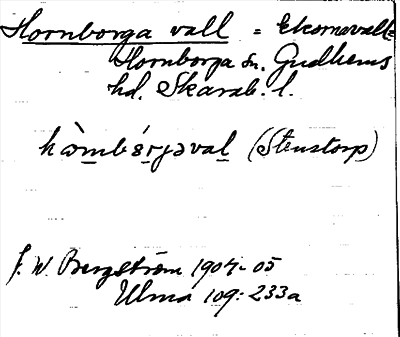 Hornborga vall = Ekornavall=
Hornborga sn. Gudhems
hd. Skarab. l.
hòmbórjəval (Stenstorp)
J. W. Bergström 1904-05
Ulma 109: 233a